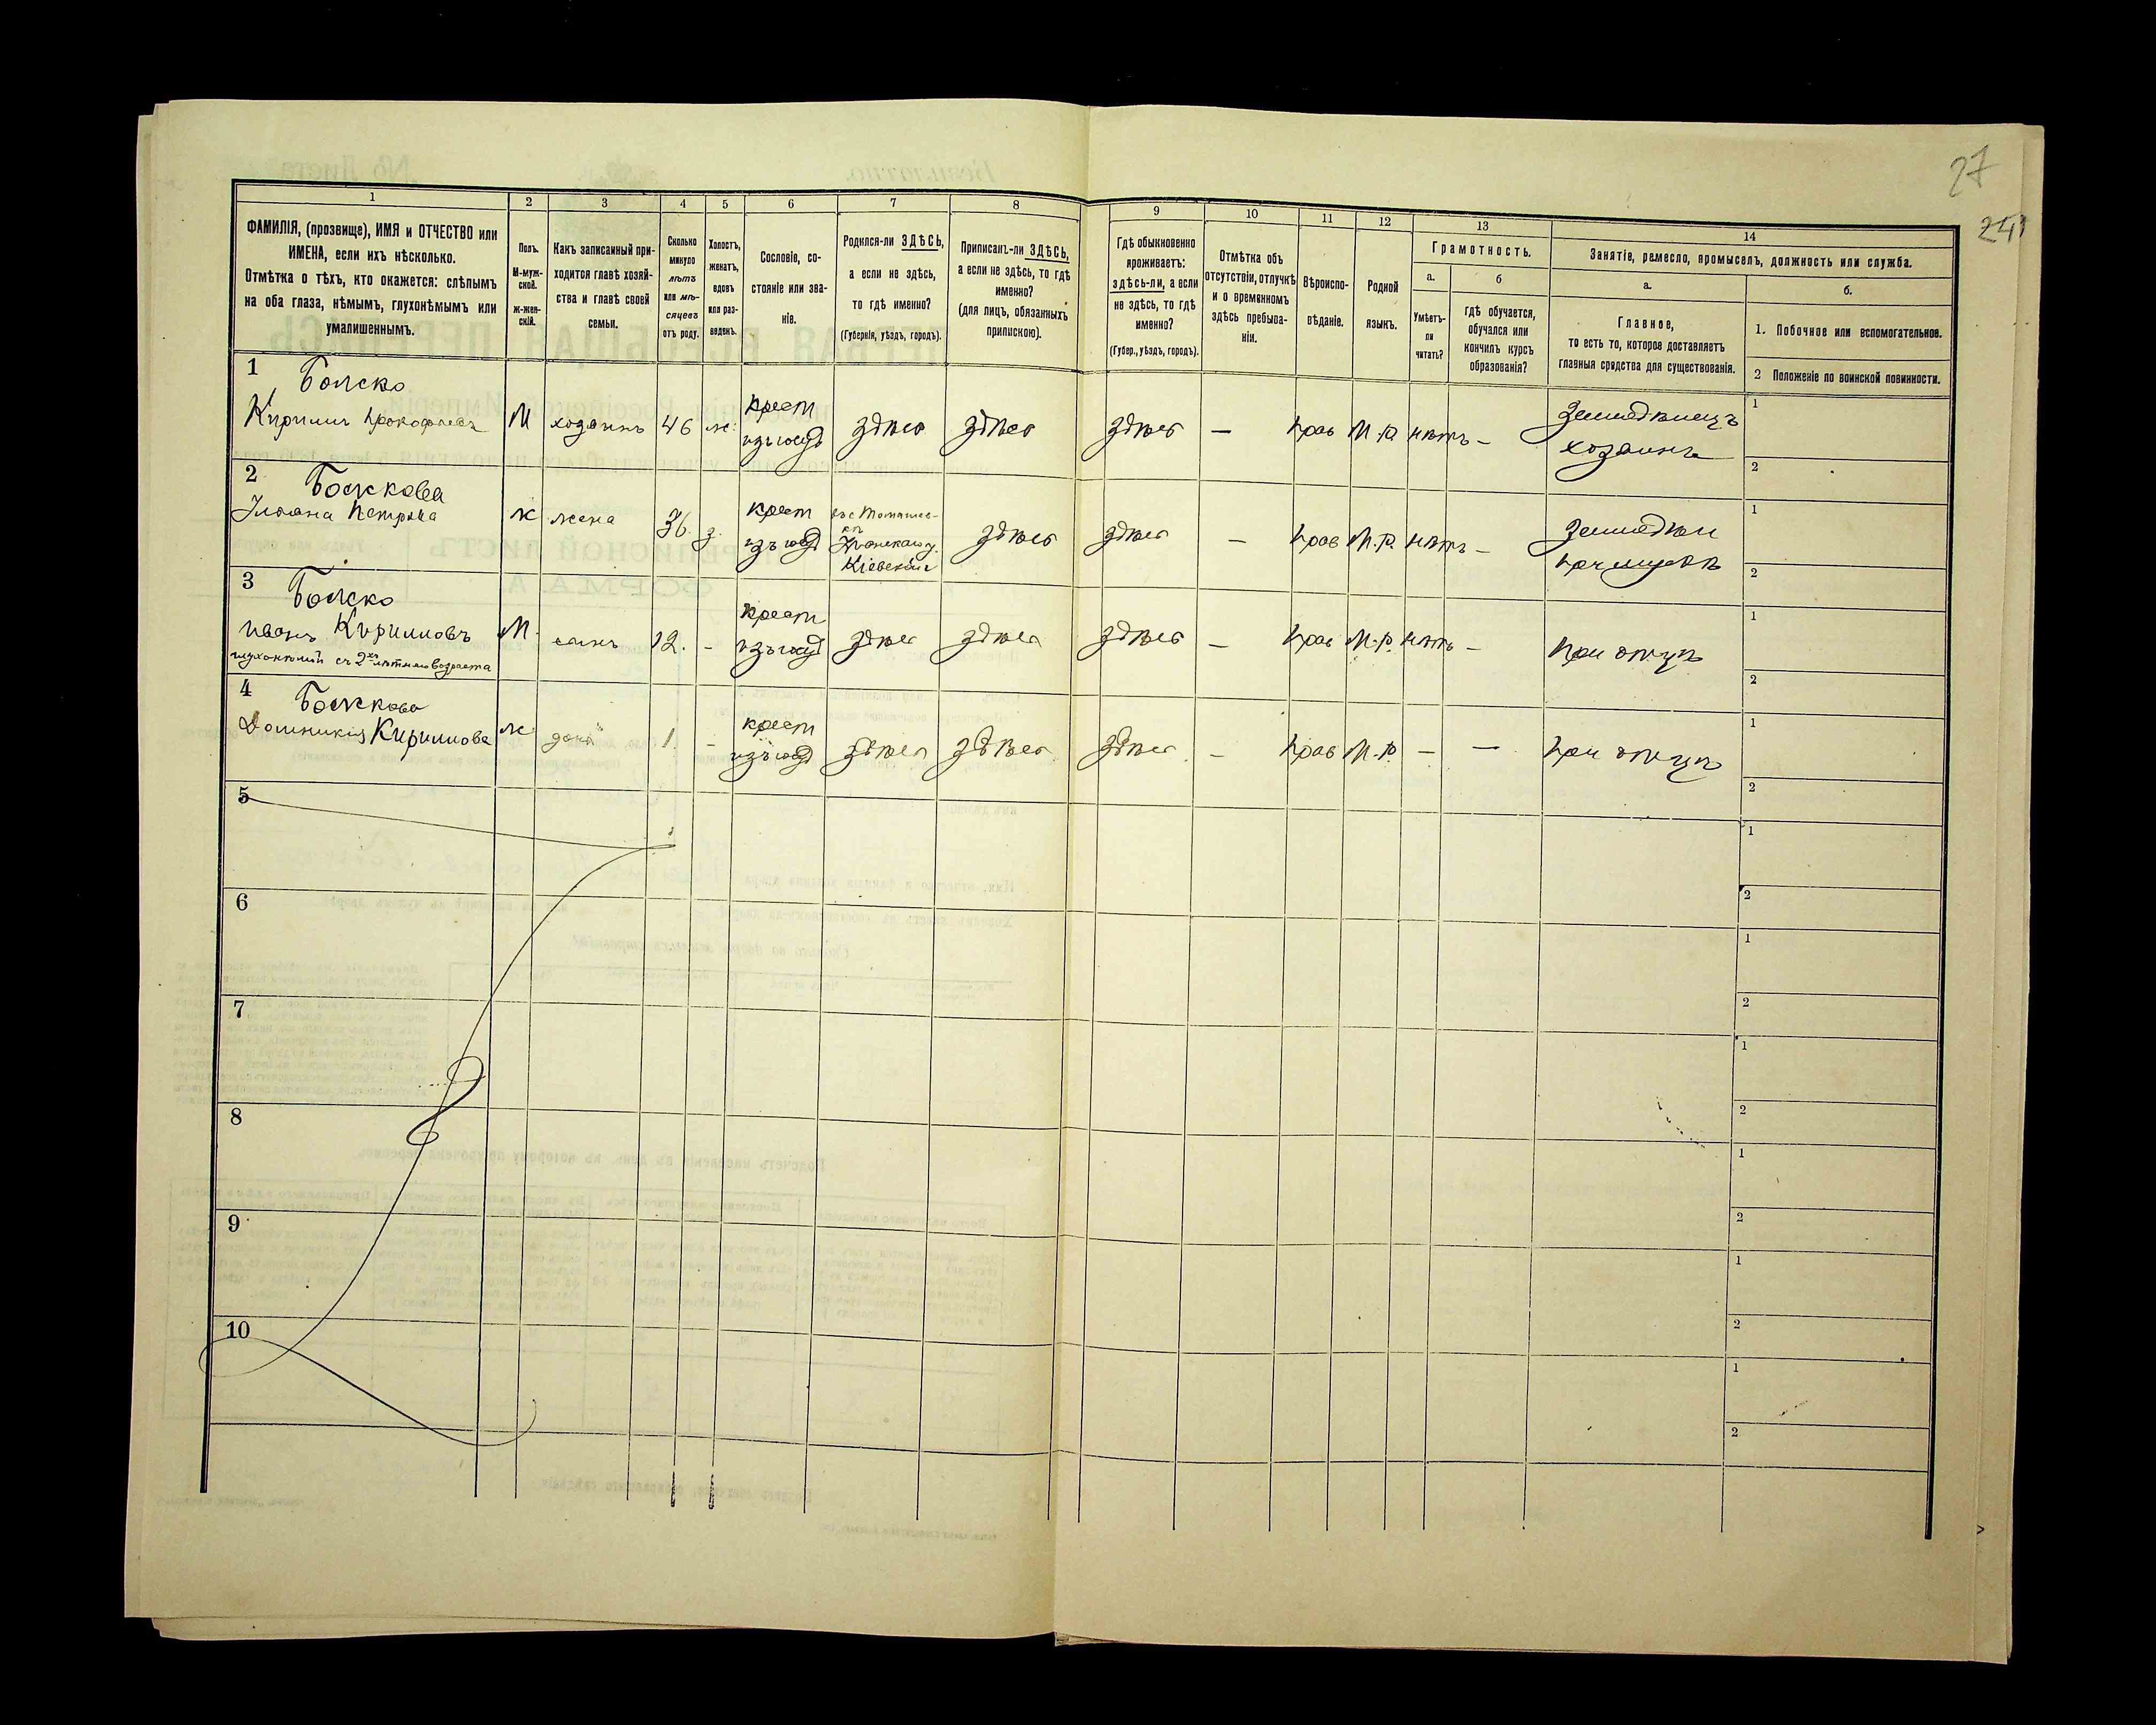 27
241
1
2
3
4
5
6
7
8
9
10
11
12
13
14
ФАМИЛІЯ, (прозвище), ИМЯ и ОТЧЕСТВО или
ИМЕНА, если ихъ нѣсколько.
Отмѣтка о тѣхъ, кто окажется: слѣпымъ
на оба глаза, нѣмымъ, глухонѣмымъ или
умалишеннымъ.
Полъ.
М-муж-
ской.
ж-жен-
скій.
Какъ записанный при-
ходится главѣ хозяй-
ства и главѣ своей
семьи.
Сколько
минуло
лѣтъ
или мѣ-
сяцевъ
отъ роду.
Холостъ,
женатъ,
вдовъ
или раз-
веденъ.
Сословіе, со-
стояніе или зва-
ніе.
Родился-ли ЗДѢСЬ,
а если не здѣсь,
то гдѣ именно?
(Губернія, уѣздъ, городъ).
Приписанъ-ли ЗДѢСЬ,
а если не здѣсь, то гдѣ
именно?
(для лицъ, обязанныхъ
припискою).
Гдѣ обыкновенно
проживаетъ:
здѣсь-ли, а если
не здѣсь, то гдѣ
именно?
(Губер., уѣздъ, городъ).
Отмѣтка объ
отсутствіи, отлучкѣ
и о временномъ
здѣсь пребыва-
ніи.
Вѣроиспо-
вѣданіе.
Родной
языкъ.
Грамотность.
а.
Умѣетъ-
ли
читать?
б
гдѣ обучается,
обучался или
кончилъ курсъ
образованія?
Занятіе, ремесло, промыселъ, должность или служба.
а.
Главное,
то есть то, которое доставляетъ
главныя средства для существованія.
б.
1. Побочное или вспомогательное.
2 Положеніе по воинской повинности.
1
Кирилъ Прокофіевъ
М хозяинъ 46 ж. крест здѣсь здѣсь здѣсь — прав М.р. нѣтъ —
Земледѣлецъ
хозяинъ
1
2
2
Петрова
ж жена 36. з. крест
Кіевской г
здѣсь здѣсь — прав М.р. нѣтъ —
1
2
3
Иванъ Кирилловъ
глухонѣмой съ 2хъ лѣтняго возраста
М. сынъ 12. - крест здѣсь здѣсь здѣсь — прав М.р. нѣтъ —
при отцѣ
1
2
4
Домникія Кирилова
ж дочь 1. - крест здѣсь здѣсь здѣсь — прав М.р. — —
при отцѣ
1
2
5
1
2
6
1
2
7
1
2
8
1
2
9
1
2
10
1
2